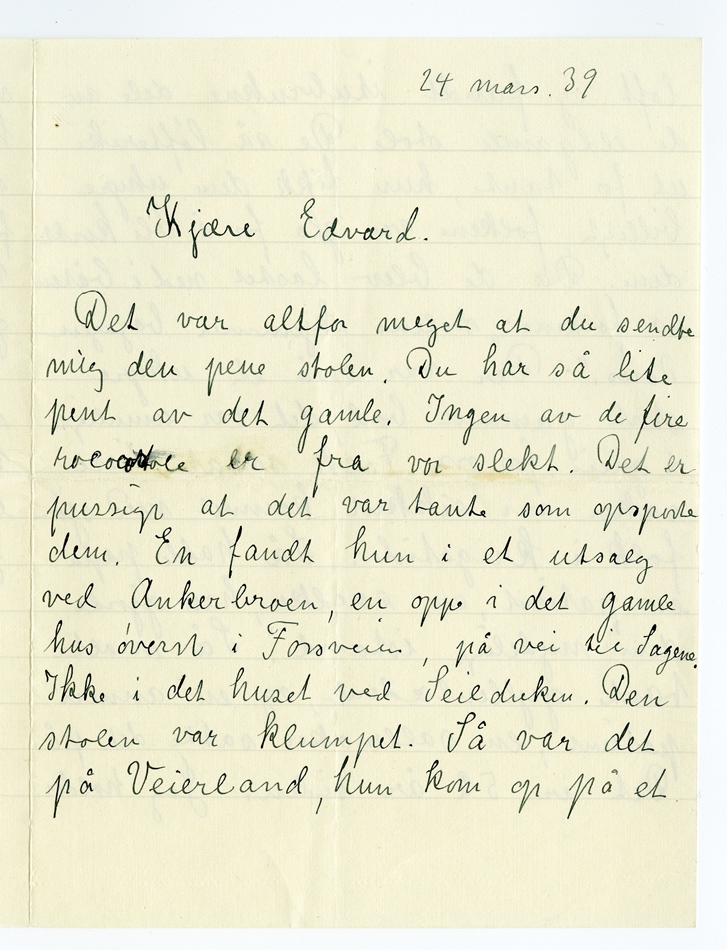 24 mars. 39
Kjære Edvard.
Det var altfor meget at du sendte
mig den pene stolen. Du har så lite
pent av det gamle. Ingen av de fire
er fra vor slekt. Det er
pussigt at det var tante som opsporte
dem. En fandt hun i et utsalg
ved Ankerbroen, en oppe i det gamle
hus øverst i Forsveien, på vei til Sagene.
Ikke i det huset ved Seilduken. Den
stolen var klumpet. Så var det
på Veierland, hun kom op på et